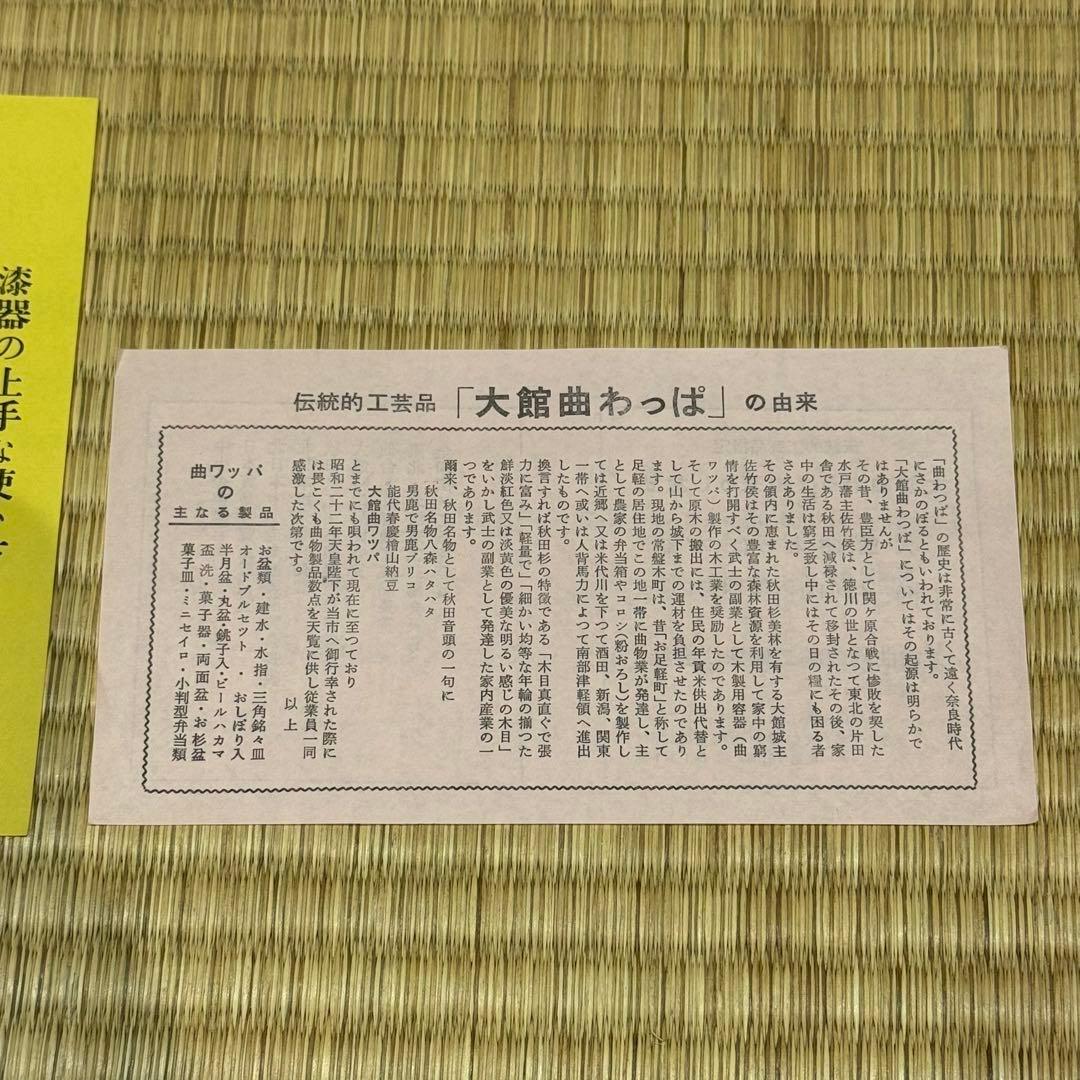 伝統的工芸品「大館曲わっぱ」の由来
「曲わつぱ」の歴史は非常に古くて遠く奈良時代
にさかのぼるともいわれております。
「大館曲わつぱ」についてはその起源は明らかで
はありませんが
その昔、豊臣方として関ケ原合戦に惨敗を契した
水戸藩主佐竹侯は、徳川の世となつて東北の片田
舎である秋田へ減禄されて移封されたその後、家
中の生活は窮乏致し中にはその日の糧にも困る者
さえありました。
その領内に恵まれた秋田杉美林を有する大館城主
佐竹侯はその豊富な森林資源を利用して家中の窮
情を打開すべく武士の副業として木製用容器(曲
ワッパ)製作の木工業を奨励したのであります。
そして原木の搬出には、住民の年貢米供出代替と
して山から城下までの運材を負担させたのであり
ます。現地の常盤木町は、昔「お足軽町」と称して
足軽の居住地でこの地一帯に曲物業が発達し、主
として農家の弁当箱やコロシ(粉おろし)を製作し
ては近郷へ又は米代川を下つて酒田、新潟、関東
一帯へ或いは人背馬力によつて南部津軽領へ進出
したものです。
換言すれば秋田杉の特徴である「木目真直ぐで張
力に富み」「軽量で」「細かい均等な年輪の揃つた
鮮淡紅色又は淡黄色の優美な明るい感じの木目」
をいかし武士の副業として発達した家内産業の一
つであります。
爾来、秋田名物として秋田音頭の一句に
秋田名物八森ハタハタ
男鹿で男鹿ブリコ
能代春慶檜山納豆
大館曲ワツパ
とまでにも唄われて現在に至つており
昭和二十二年天皇陛下が当市へ御行幸された際に
は畏こくも曲物製品数点を天覧に供し従業員一同
感激した次第です。
以上
曲ワッパ
の
主なる製品
お盆類・建水・水指・三角銘々皿
オードブルセット・おしぼり入
半月盆・丸盆・銚子入・ビールハカマ
盃洗・菓子器・両面盆・お杉盆
菓子皿・ミニセイロ・小判型弁当類
漆器の上手な使い